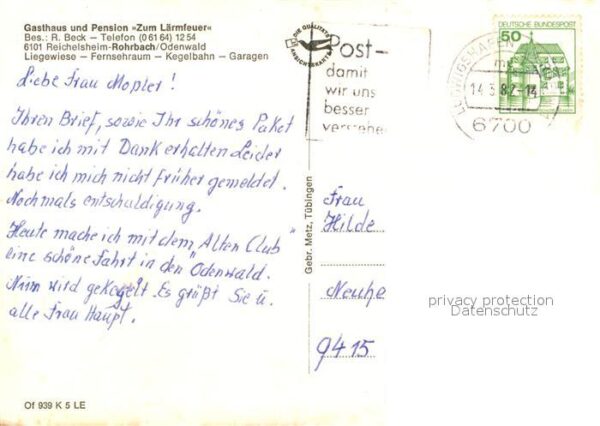 Gasthaus und Pension »Zum Lärmfeuer«
Bes.: R. Beck – Telefon (06164) 1254
6101 Reichelsheim-Rohrbach/Odenwald
Liegewiese – Fernsehraum – Kegelbahn – Garagen
DIE QUALITÄTS
ANSICHTSKARTE
Post-
damit
wir uns
besser
verstehe
50 DEUTSCHE BUNDESPOST
LUDWIGSHAFEN
14.5.82-14
6700
Liebe Frau Mopler!
Ihren Brief, sowie Ihr schönes Paket
habe ich mit Dank erhalten Leider
habe ich mich nicht früher gemeldet.
Nochmals entschuldigung.
Heute mache ich mit dem „Alten Club"
eine schöne Fahrt in den Odenwald.
Nun wird gekegelt. Es grüßt Sie u.
alle Frau Haupt.
Gebr. Metz, Tübingen
Frau
Hilde
Neuhe
9415
privacy protection
Datenschutz
Of 939 K 5 LE